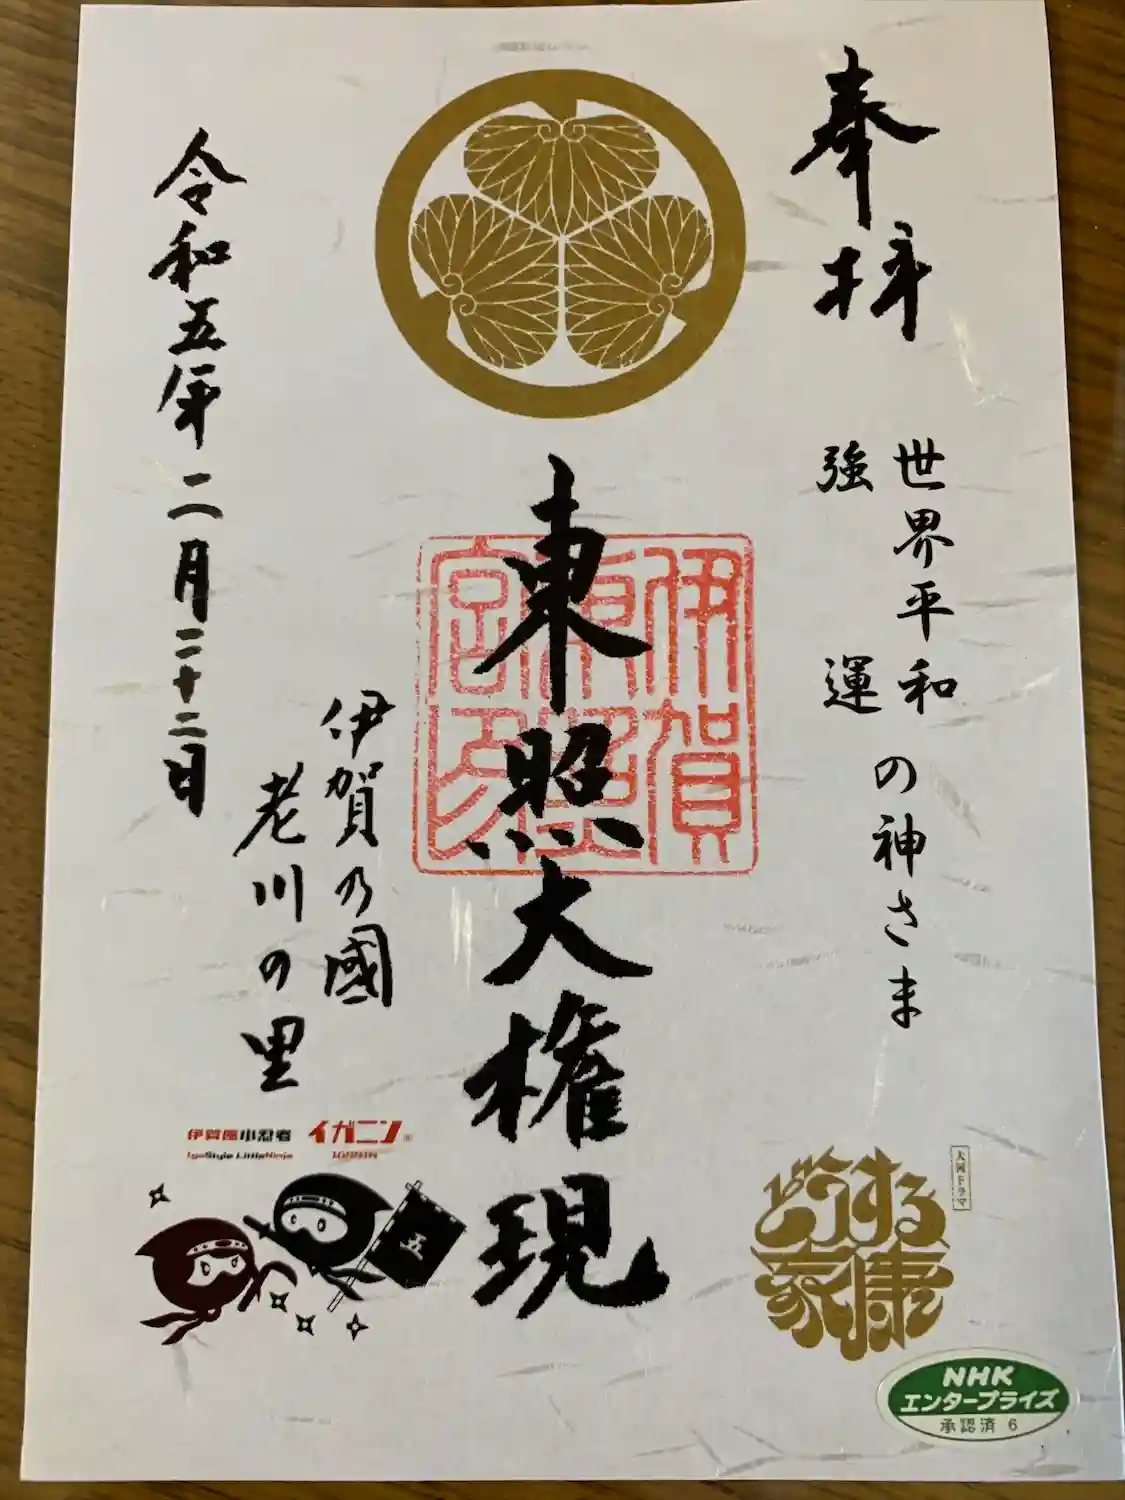 奉拝
世界平和
強運
の神さま
東照大権現
伊賀
東照
宮
伊賀乃國
老川の里
令和五年二月二十二日
伊賀風小忍者 イガニン
IgaStyle LittleNinja IGANIN
五
大河ドラマ
どうする
家康
NHK
エンタープライズ
承認済 6